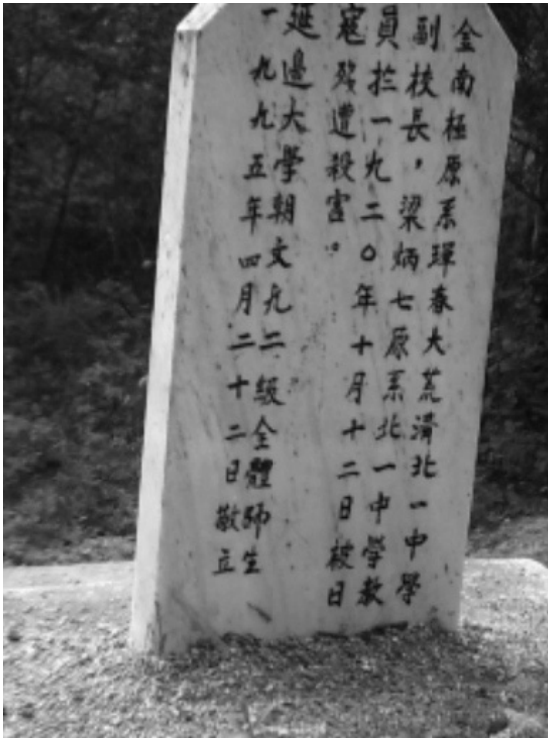 金南極原系琿春大荒溝北一中學
副校長，梁炳七原系北一中學教
員扵一九二0年十月十二日被日
寇殘遭殺害。
延邊大學朝文九二級全體師生
一九九五年四月二十二日敬立